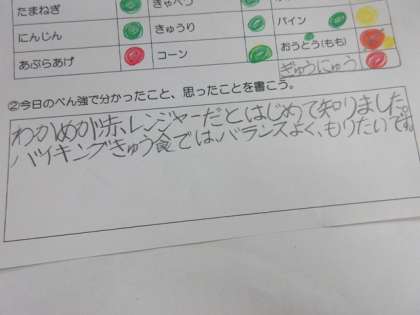 たまねぎ きゅべつ
にんじん きゅうり パイン
あぶらあげ コーン おうとう(もも)
ぎゅうにゅう
②今日のべん強で分かったこと、思ったことを書こう。
わかめが赤レンジャーだとはじめて知りました。
バイキングきゅう食では、バランスよく、もりたいです。